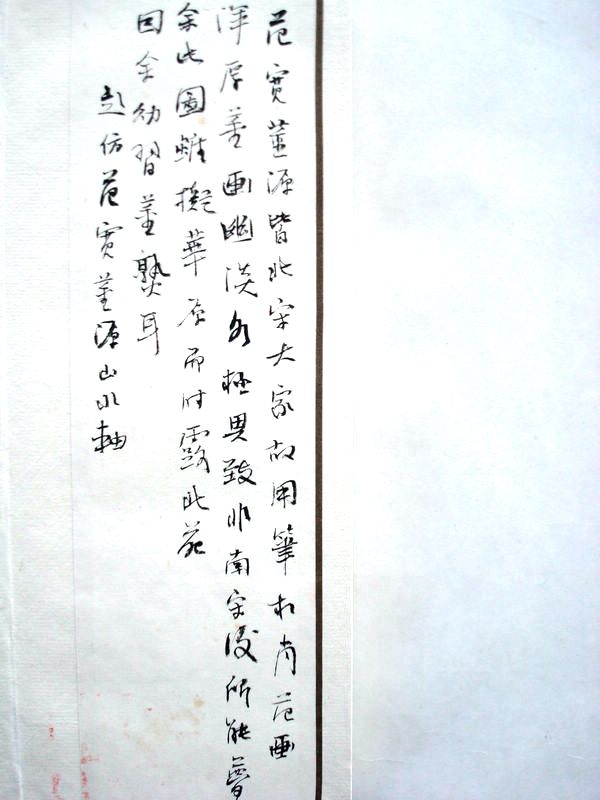 范寬董源皆北宋大家故用筆相肖范畫
渾厚董畫幽淡各極異致非南宋後所能夢
余此圖雖擬華原而時露北苑
因余幼習董熟耳
趙仿范寬董源山水軸